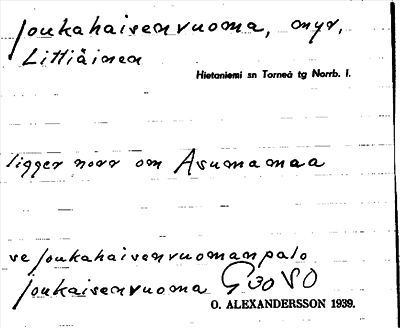 Joukahaisenvuoma, myr,
Littiäinen
Hietaniemi sn Torneå tg Norrb. l.
ligger norr om Asumamaa
se Joukahaisenvuomanpalo
Joukaisenvuoma G30 SO
O. ALEXANDERSSON 1939.